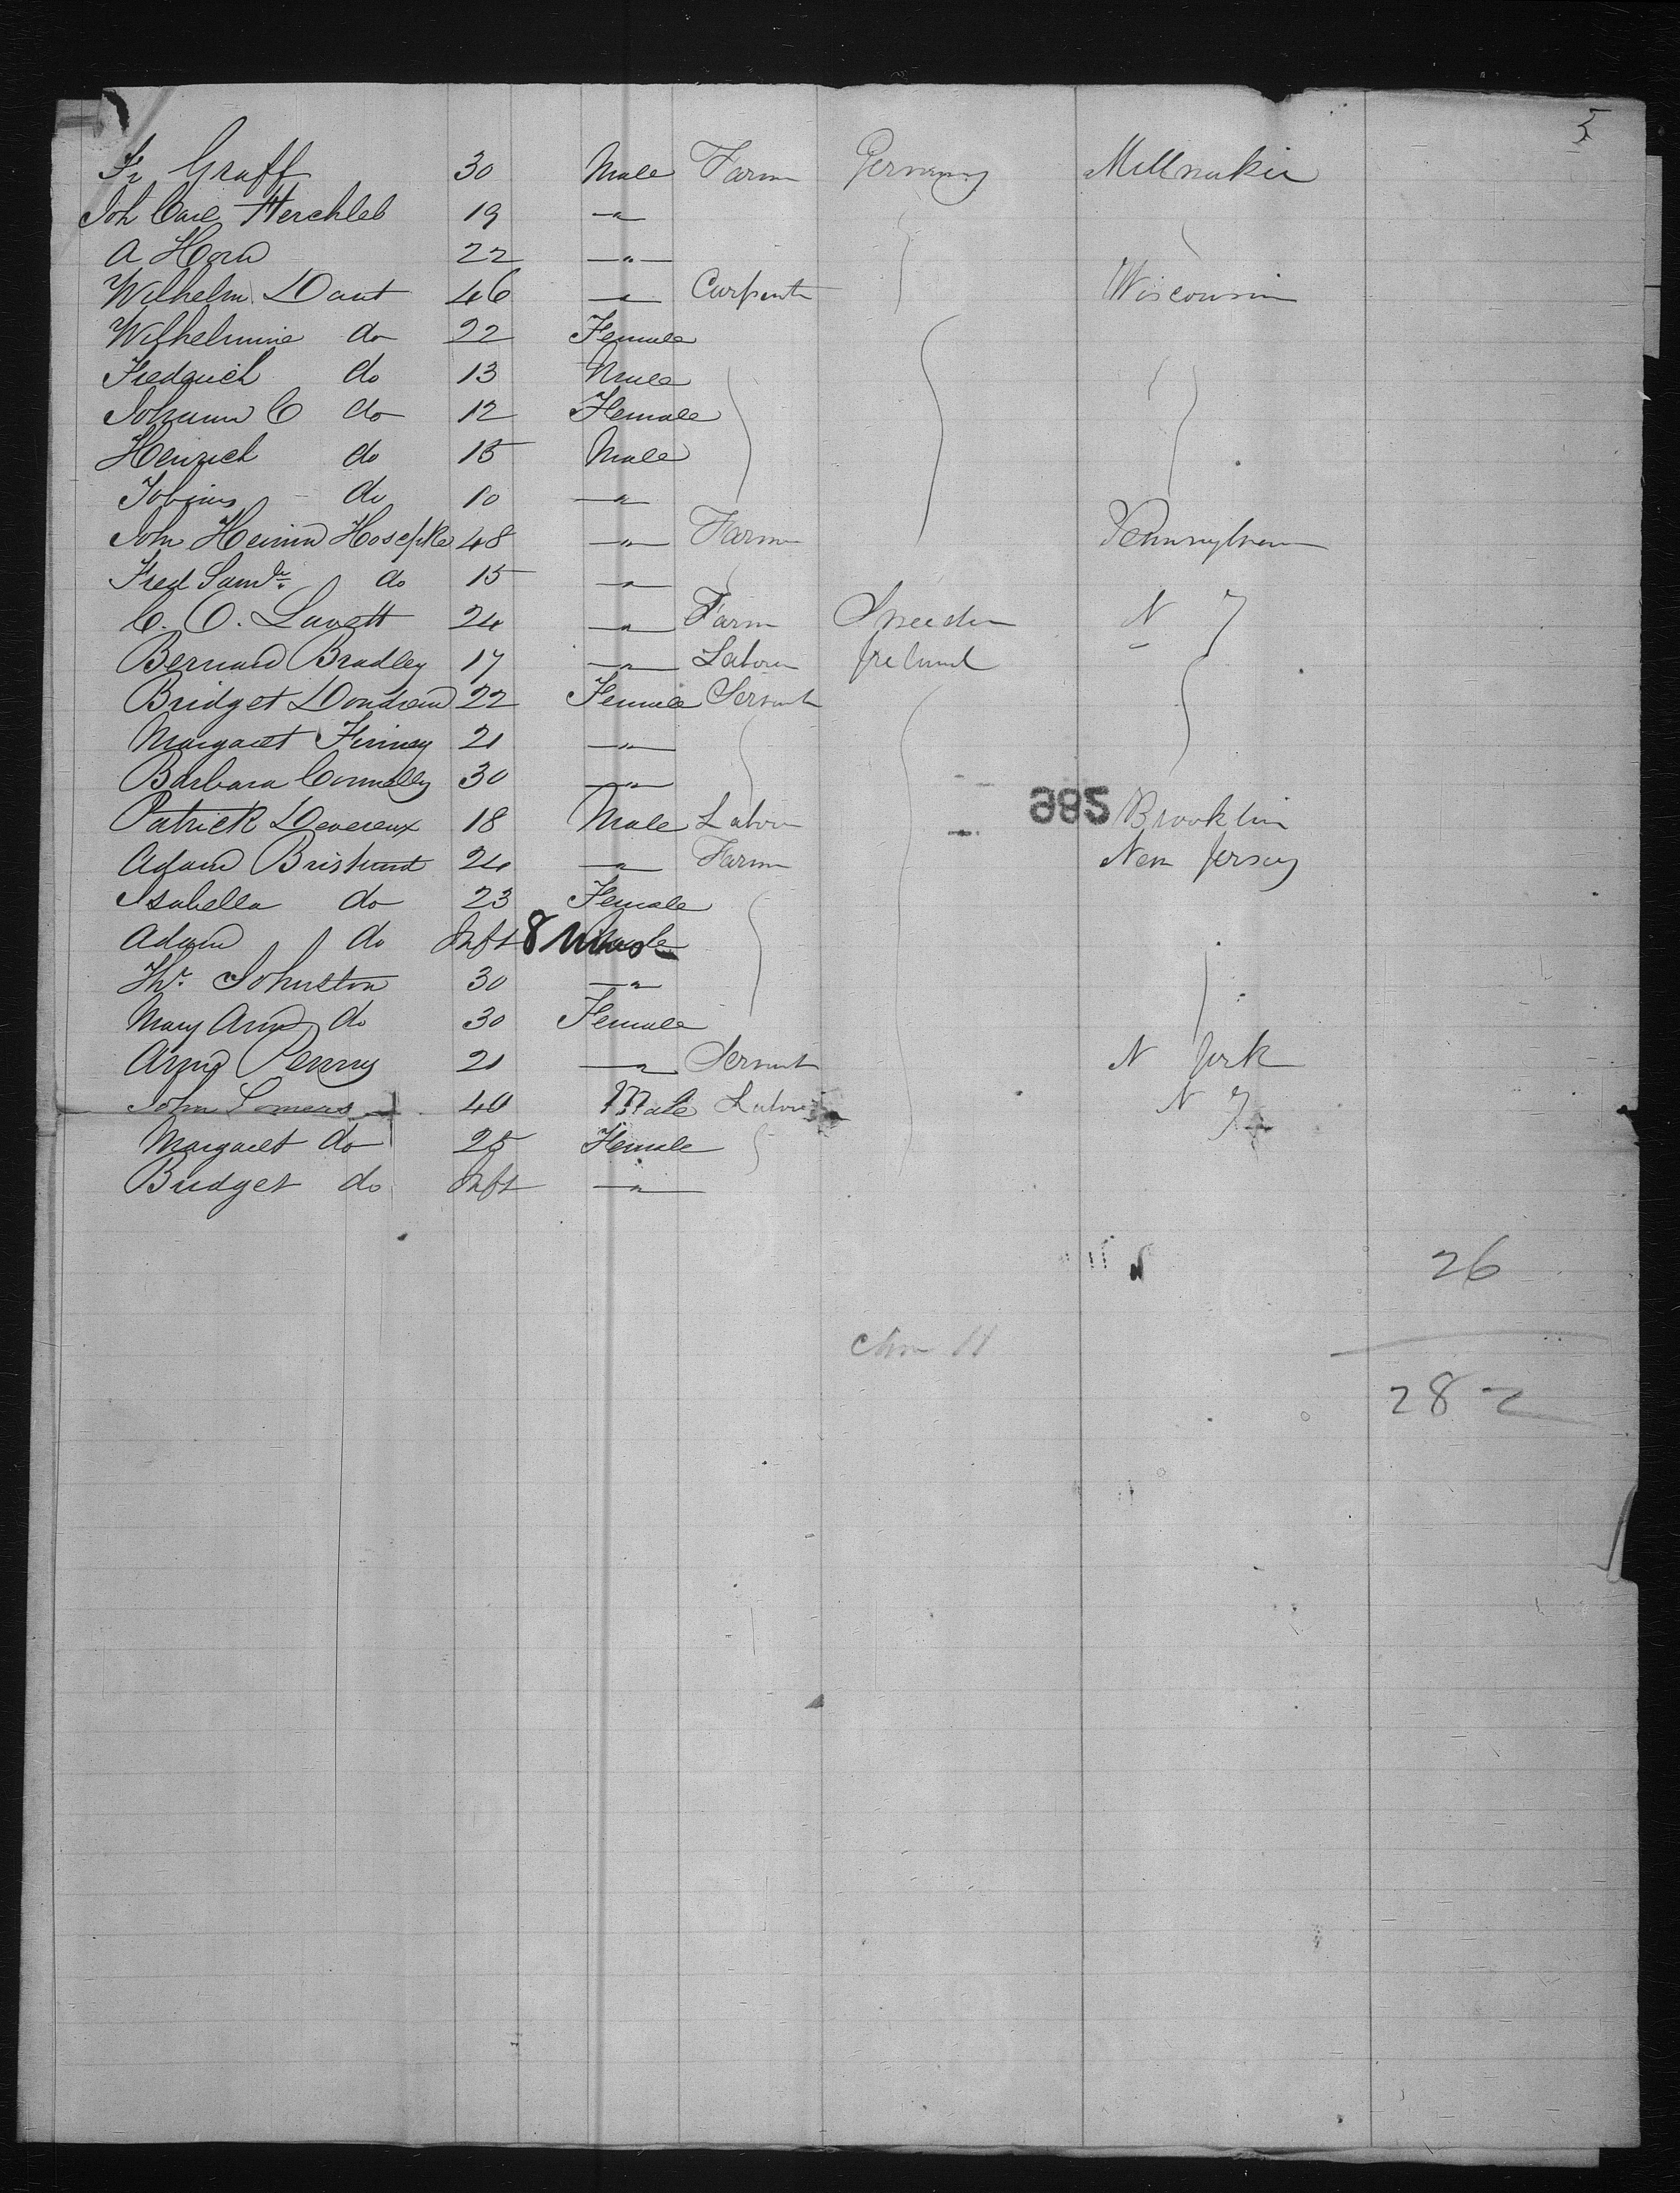 5
Fr Graff 30 Male Farm Germany Millnukie
Joh Carl Herchleb 19 —"—
A Horn 22 —"—
Wilhelm Daut 46 —"— Carpent Wisconsin
Wilhelmine do 22 Female
Frederich do 13 Male
Johann C do 12 Female
Heinrich do 15 Male
do 10 —"—
John Heinin Hosepke 48 —"— Farm Pennsylvan
Fred Saml do 15 —"—
C. O. Lavett 24 —"— Farm Sweeden N J
Bernard Bradley 17 —"— Labour Ireland
Bridget Dondrean 22 Female Servant
Margaret Finney 21 —"—
Barbara Connelly 30 —"—
Patrick Devereux 18 Male Labour Brooklin
Adam 24 —"— Farm New Jersey
Isabella do 23 Female
Adam do Inft 8 Mos Male
Thr Johnston 30 —"—
Mary Ann do 30 Female
Ann Penny 21 —"— Servant N York
John Somers 40 Male Labour N J
Margaret do 25 Female
Bridget do Inft —"—
26
282